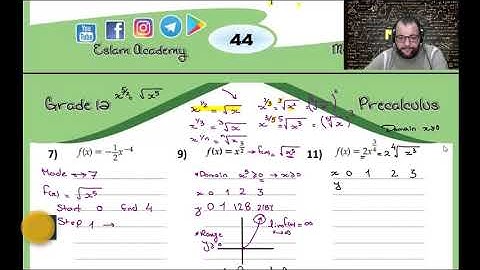 Eslam Academy
44
Grade 12
x^{5/2} = √x^5
x^{1/2} = √x
x^{1/3} = ∛x
x^{1/n} = ⁿ√x
x^{3/5} = ⁵√x^3 = (⁵√x)^3
Precalculus
Domain x≥0
7) f(x) = -1/2 x^{-4}
Mode → 7
f(x) = √x^5
Start 0 End 4
Step 1 →
9) f(x) = x^{5/2} → f(x) = √x^5
*Domain x^5 ≥ 0 → x ≥ 0
x 0 1 2 3
y 0 1
*Range
y ≥ 0
lim f(x) = ∞
x→∞
11) f(x) = 2x^{3/4} = 2 ⁴√x^3
x 0 1 2 3
y